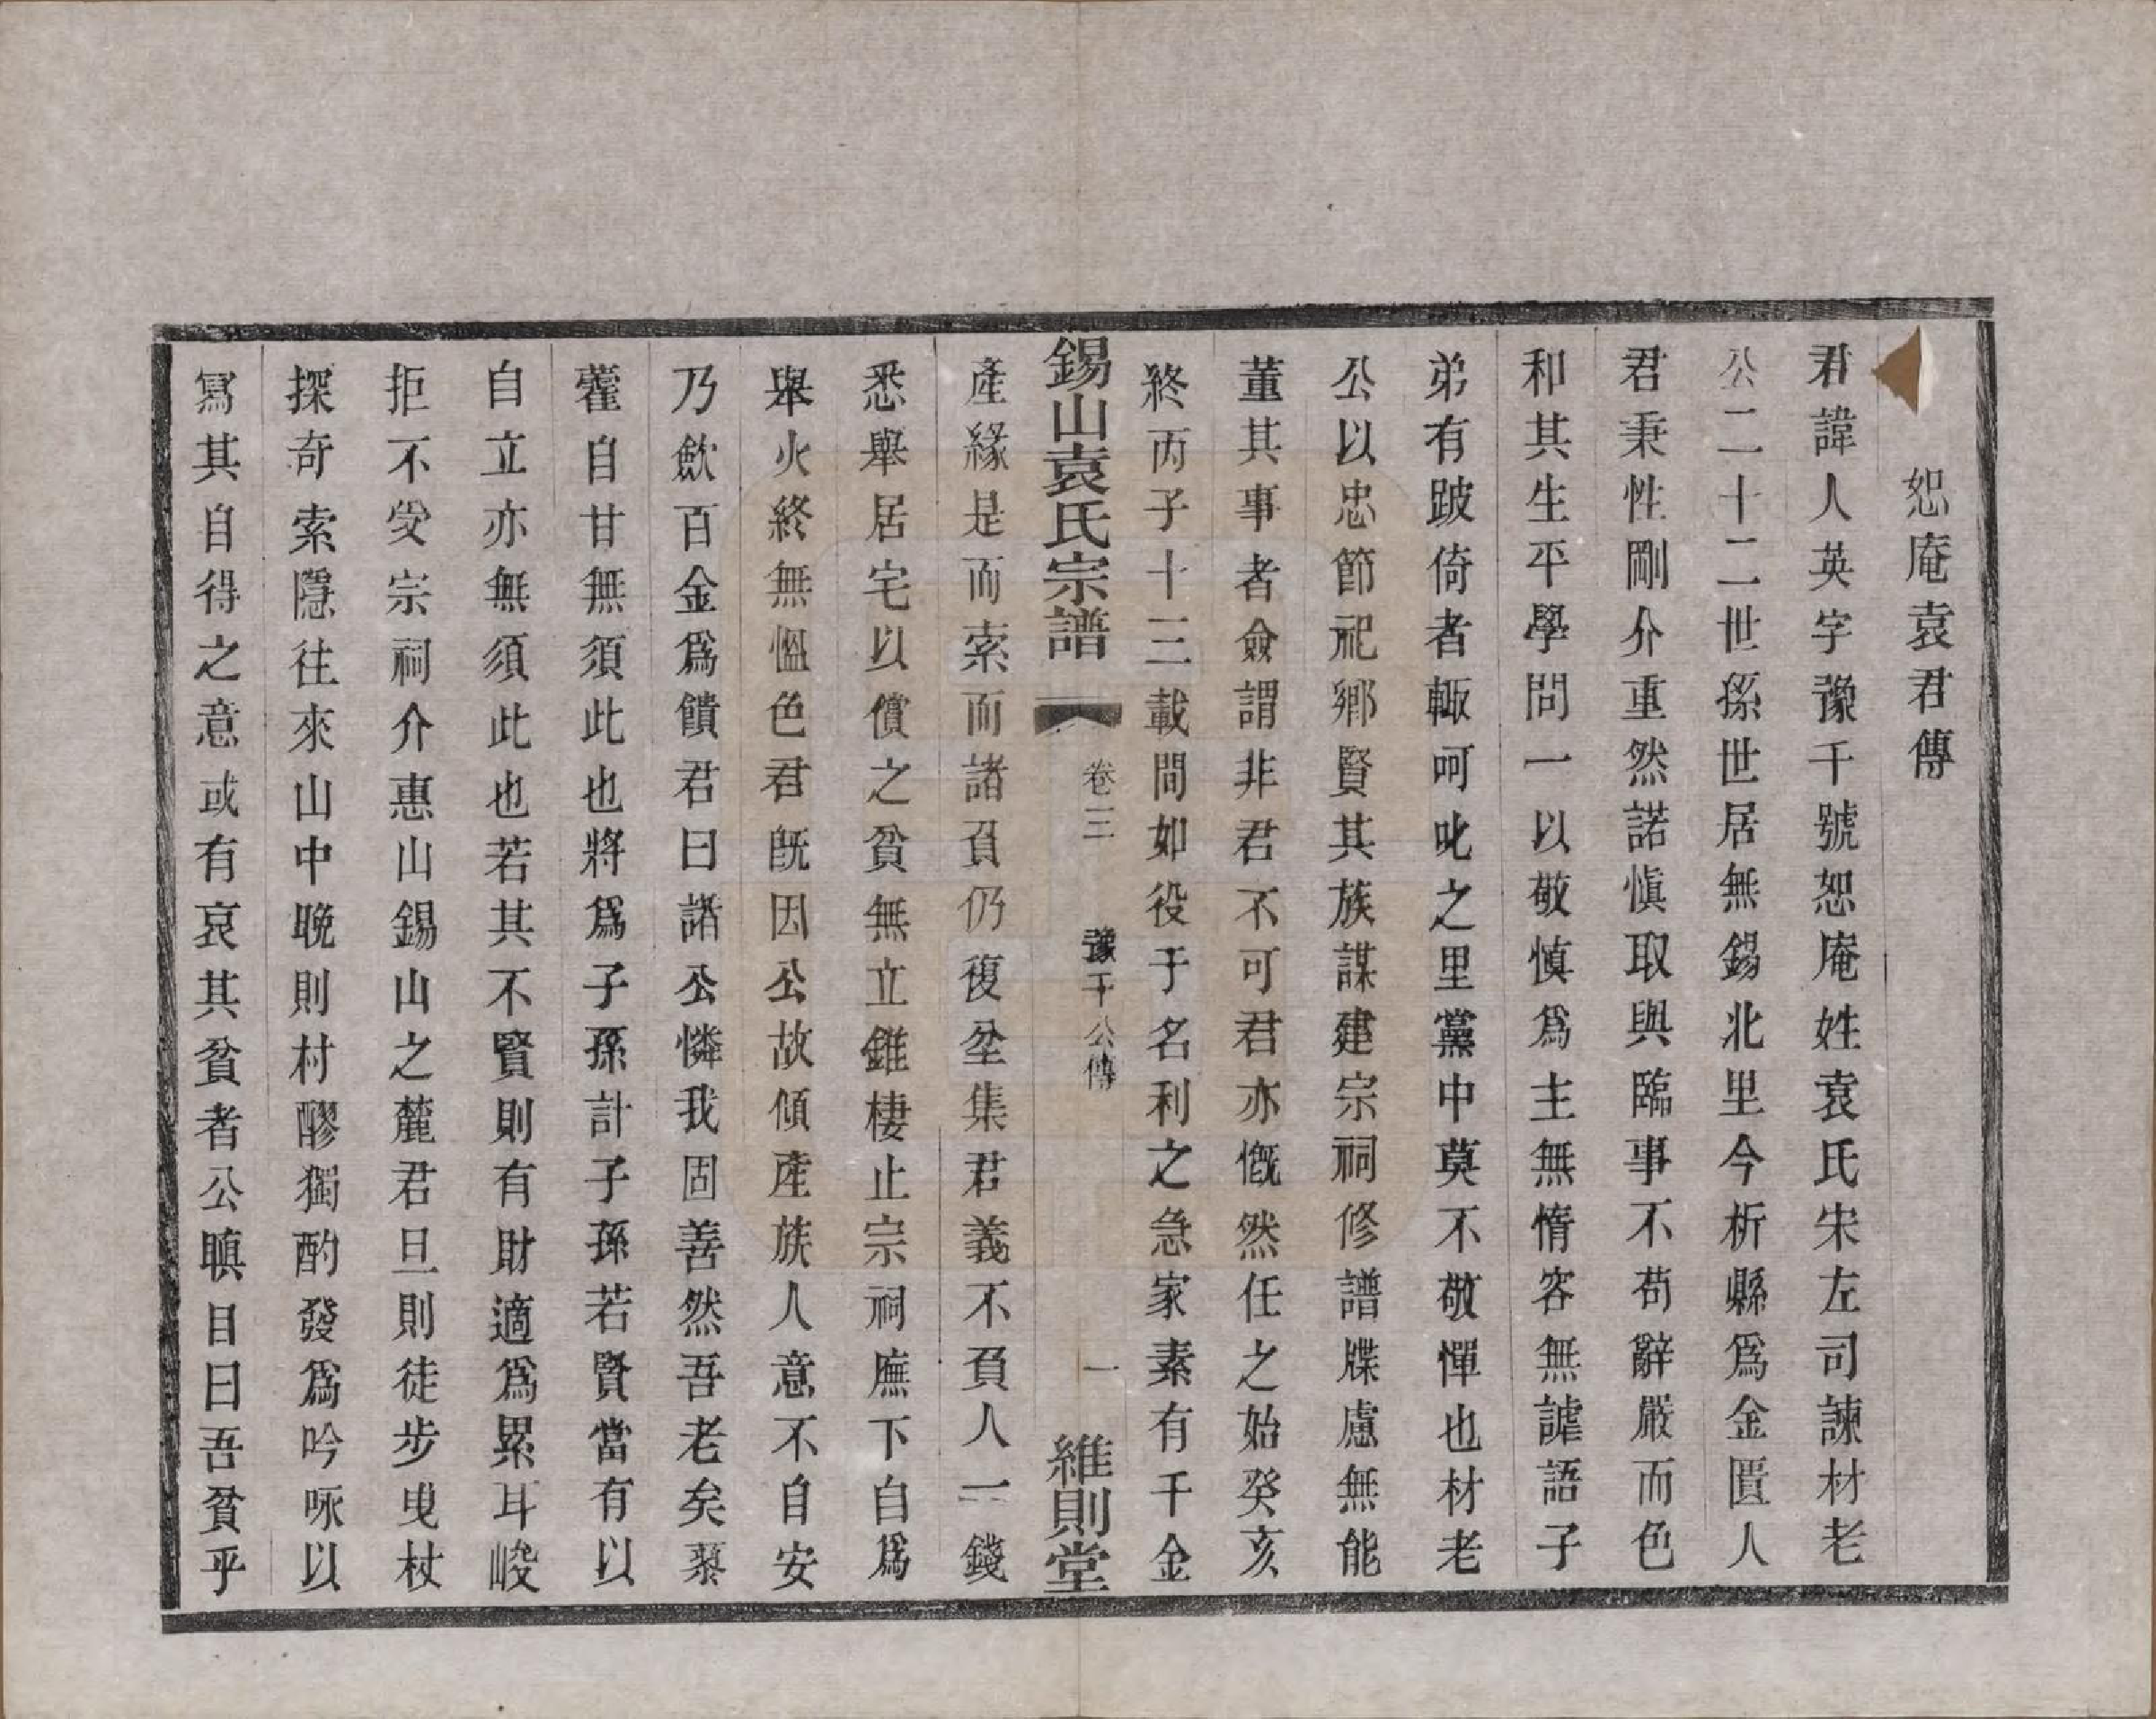 恕庵袁君傳
君諱人英字豫千號恕庵姓袁氏宋左司諫材老
公二十二世孫世居無錫北里今析縣爲金匱人
君秉性剛介重然諾愼取與臨事不苟辭嚴而色
和其生平學問一以敬慎爲主無惰容無謔語子
弟有跛倚者輙呵叱之里黨中莫不敬憚也材老
公以忠節祀鄉賢其族謀建宗祠修譜牒慮無能
董其事者僉謂非君不可君亦慨然任之始癸亥
終丙子十三載間如役于名利之急家素有千金
錫山袁氏宗譜 卷三 豫千公傳 一 維則堂
產緣是而索而諸負仍復坌集君義不負人一錢
悉舉居宅以償之貧無立錐棲止宗祠廡下自爲
舉火終無慍色君既因公故傾產族人意不自安
乃歛百金爲饋君曰諸公憐我固善然吾老矣藜
藿自甘無須此也將爲子孫計子孫若賢當有以
自立亦無須此也若其不賢則有財適爲累耳峻
拒不受宗祠介惠山錫山之麓君旦則徒步曳杖
探奇索隱往來山中晚則村醪獨酌發爲吟咏以
寫其自得之意或有哀其貧者公瞋目曰吾貧乎